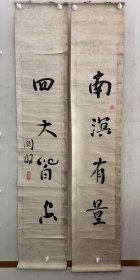 南溟有量
四大皆空